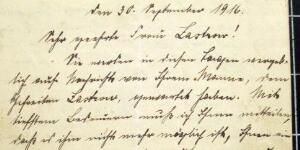 den 30. September 1916.
Sehr geehrte Frau Lastrow!
Sie werden in diesen Tagen vergeb-
lich auf Nachricht von Ihrem Manne, dem
Gefreiten Lastrow, gewartet haben. Mit
tiefstem Bedauern muß ich Ihnen mitteilen,
daß es ihm nicht mehr möglich ist, Ihnen